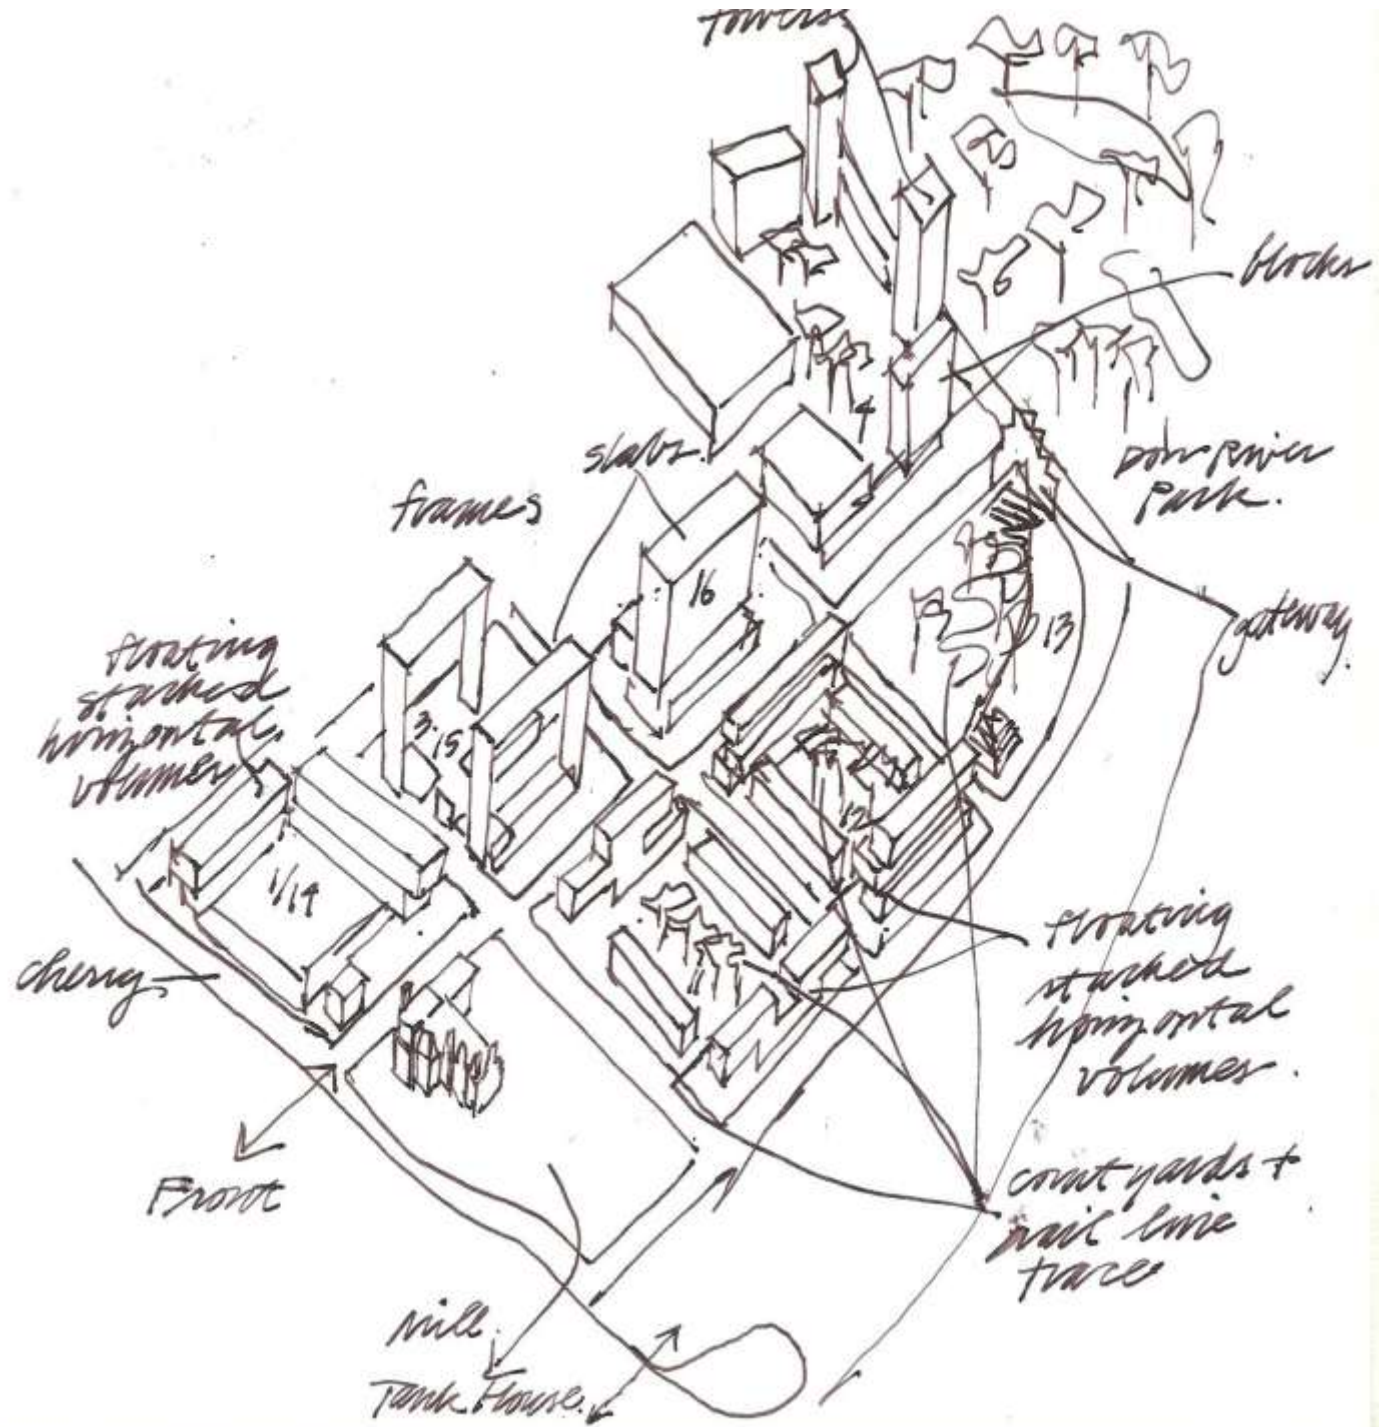 towers
blocks
slabs.
Don River
Park.
frames
16
4
6
13
gateway.
floating
stacked
horizontal
volumes
3.
15
12
1/14
11
cherry
floating
stacked
horizontal
volumes.
Front
courtyards +
rail line
traces
Mill.
Tank House.